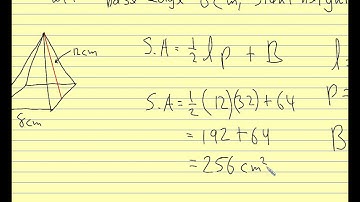 Base edge 8cm, slant height
12cm
8cm
S.A = 1/2 l p + B
l =
S.A = 1/2 (12)(32) + 64
p =
= 192 + 64
B
= 256 cm²